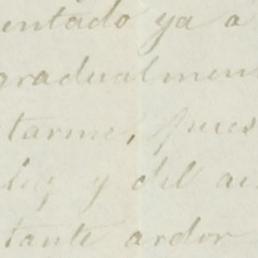 entado ya a
gradualmen
tarme, pues
ley y del ai
tante ardor